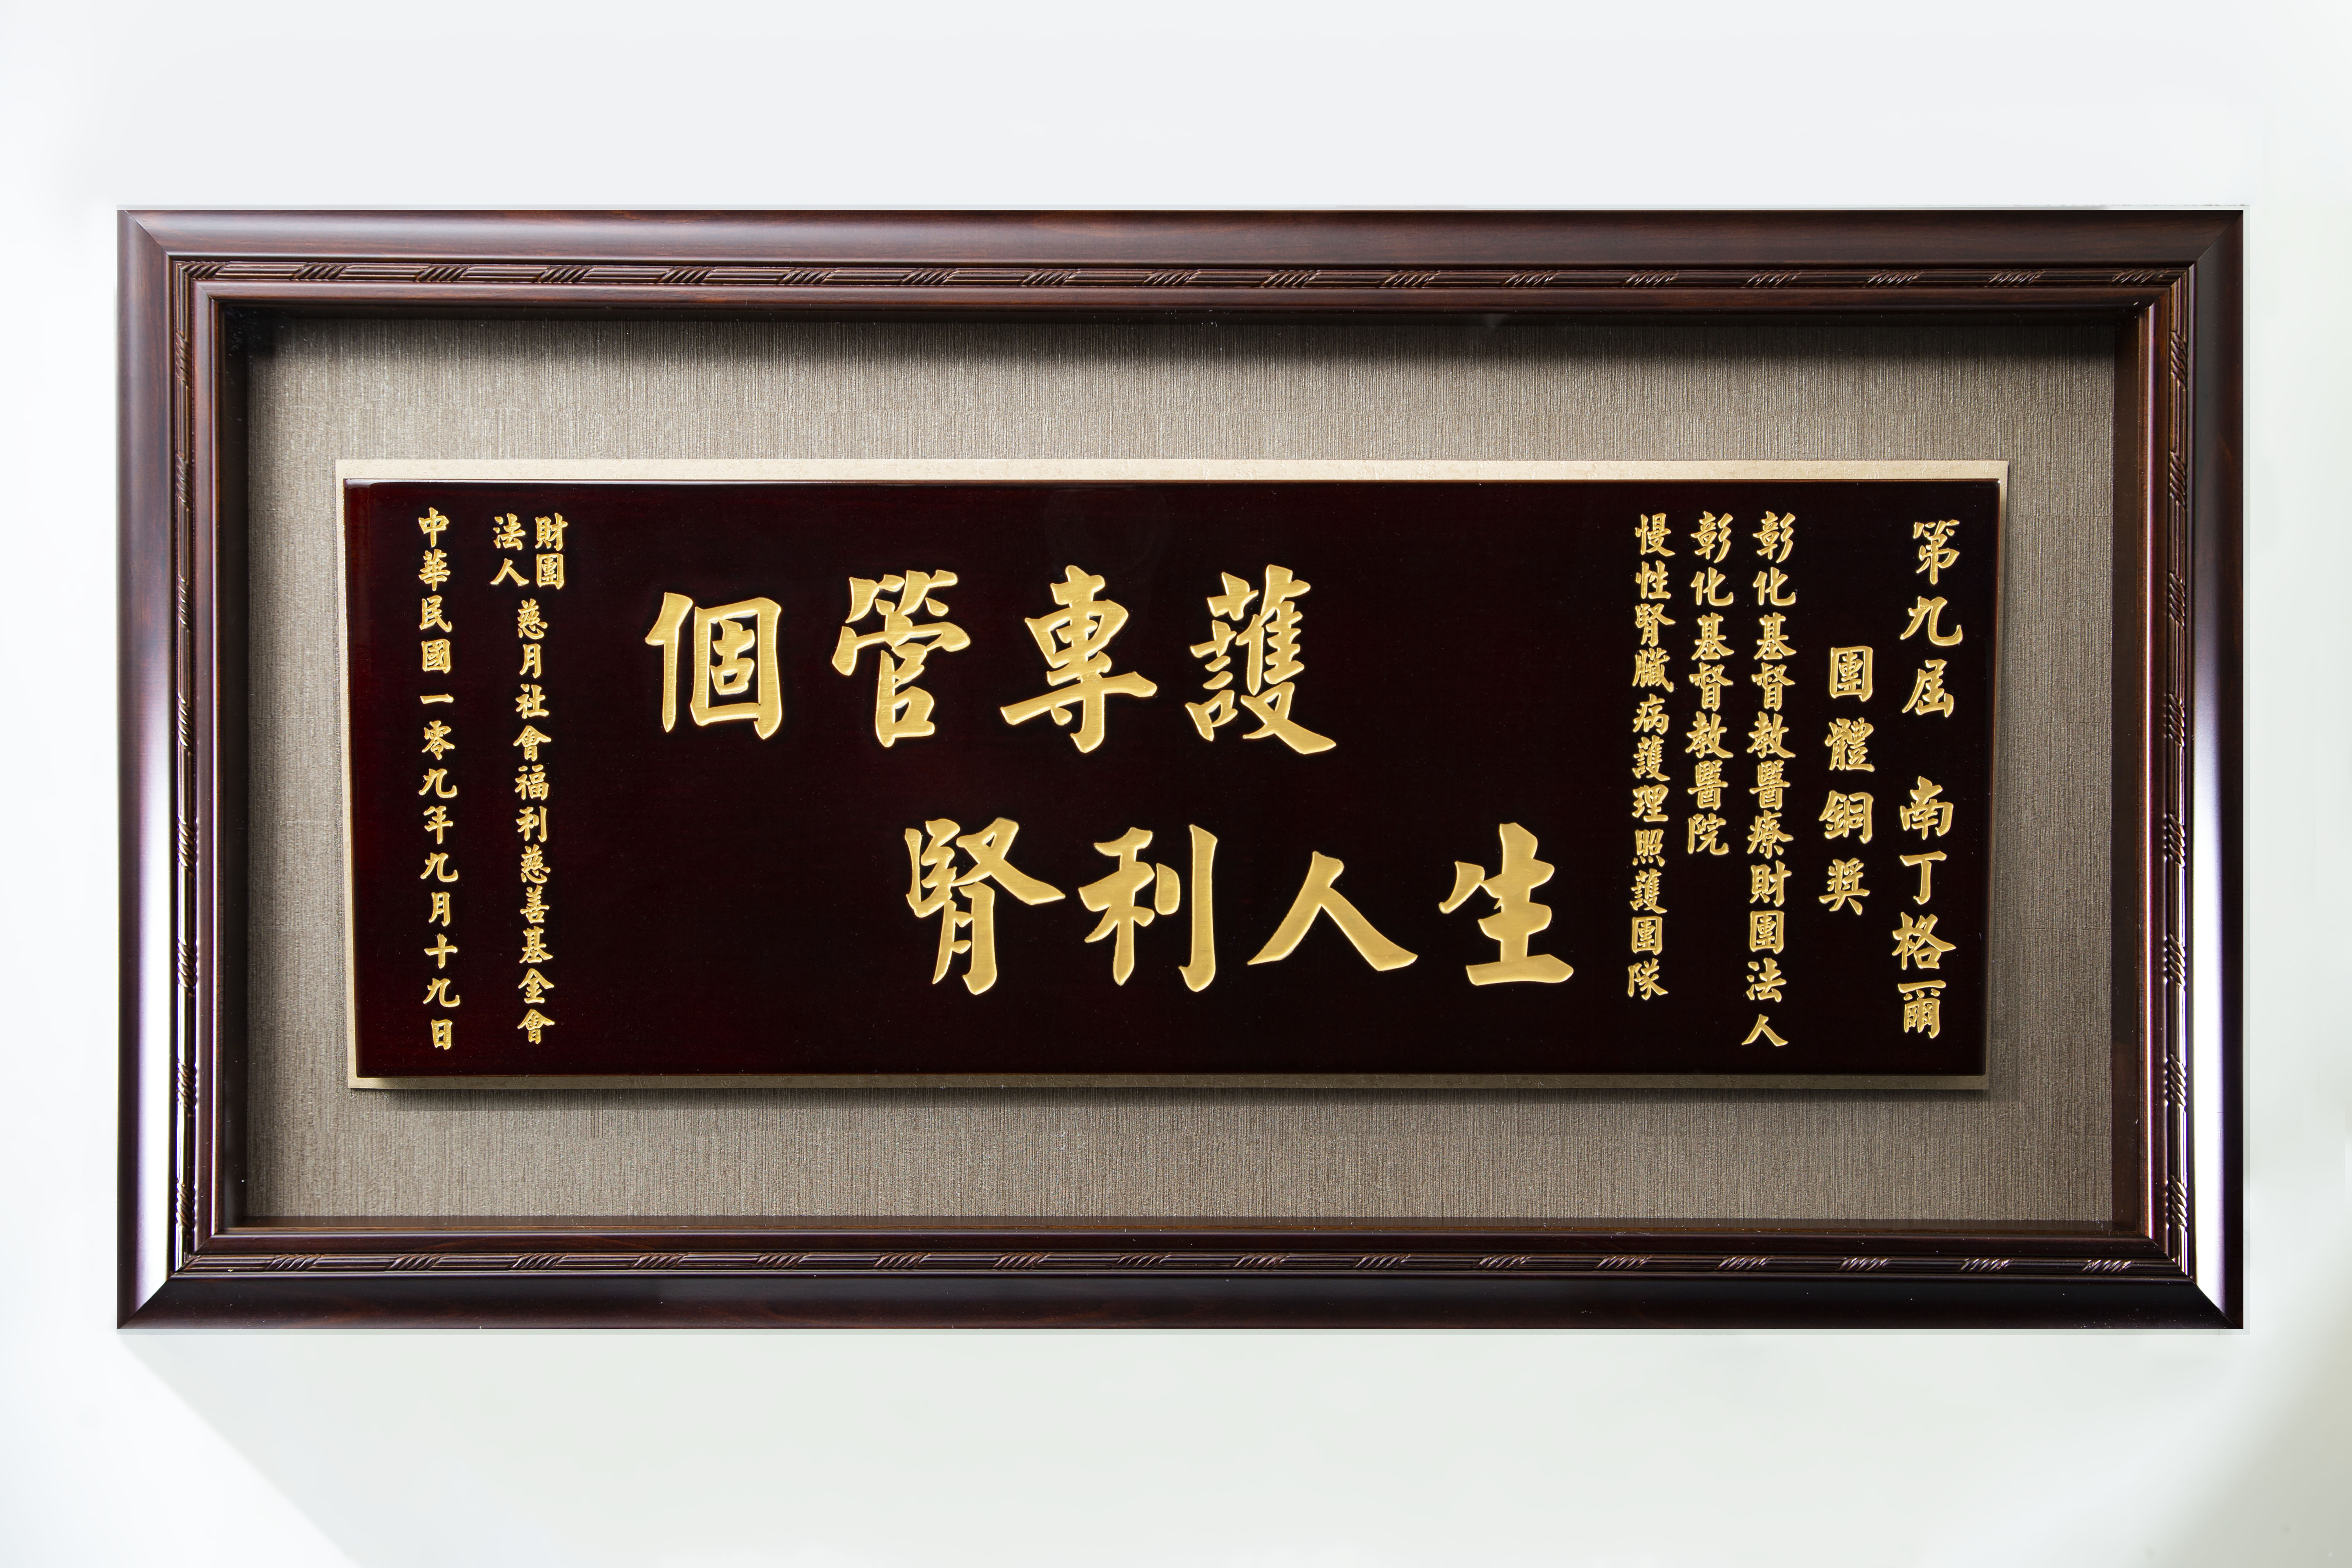 第九屆 南丁格爾
團體銅獎
彰化基督教醫療財團法人
彰化基督教醫院
慢性腎臟病護理照護團隊
個管專護
腎利人生
財團法人 慈月社會福利慈善基金會
中華民國一零九年九月十九日